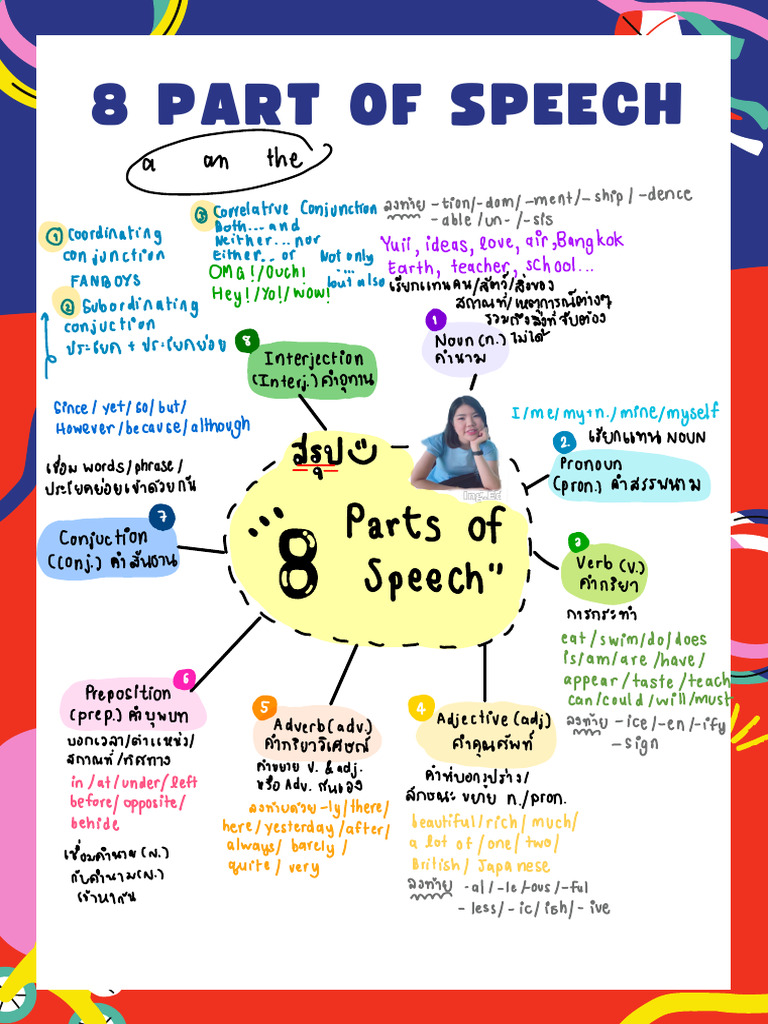 8 PART OF SPEECH
a an the
① Coordinating
conjunction
FANBOYS
② Subordinating
conjuction
ประโยค + ประโยคย่อย
③ Correlative Conjunction
Both...and
Neither...nor
Either..or Not only
.... but also
OMG!/Ouch!
Hey!/Yo!/wow!
ลงท้าย -tion/-dom/-ment/-ship/-dence
-able/un-/-sis
Yuii, ideas, love, air, Bangkok
Earth, teacher, school...
เรียกแทนคน/สัตว์/สิ่งของ
สถานที่/เหตุการณ์ต่างๆ
รวมถึงสิ่งที่จับต้อง
ไม่ได้
1
Noun (n.)
คำนาม
8
Interjection
(Interj.) คำอุทาน
Since/yet/so/but/
However/because/although
เชื่อม words/phrase/
ประโยคย่อยเข้าด้วยกัน
7
Conjuction
(Conj.) คำสันธาน
I/me/my+n./mine/myself
เรียกแทน NOUN
2
Pronoun
(pron.) คำสรรพนาม
สรุป
Img.Ed
"8 Parts of
Speech"
3
Verb (v.)
คำกริยา
การกระทำ
eat/swim/do/does
is/am/are/have/
appear/taste/teach
can/could/will/must
ลงท้าย -ice/-en/-ify
-sign
6
Preposition
(prep.) คำบุพบท
บอกเวลา/ตำแหน่ง/
สถานที่/ทิศทาง
in/at/under/left
before/opposite/
behide
เชื่อมคำนาม (N.)
กับคำนาม(N.)
เข้าหากัน
5
Adverb (adv.)
คำกริยาวิเศษณ์
คำขยาย V. & adj.
หรือ Adv. กันเอง
ลงท้ายด้วย -ly/there/
here/yesterday/after/
always/barely/
quite/very
4
Adjective (adj)
คำคุณศัพท์
คำที่บอกรูปร่าง/
ลักษณะ ขยาย n./pron.
beautiful/rich/much/
a lot of/one/two/
British/Japanese
ลงท้าย -al/-le/-ous/-ful
-less/-ic/ish/-ive